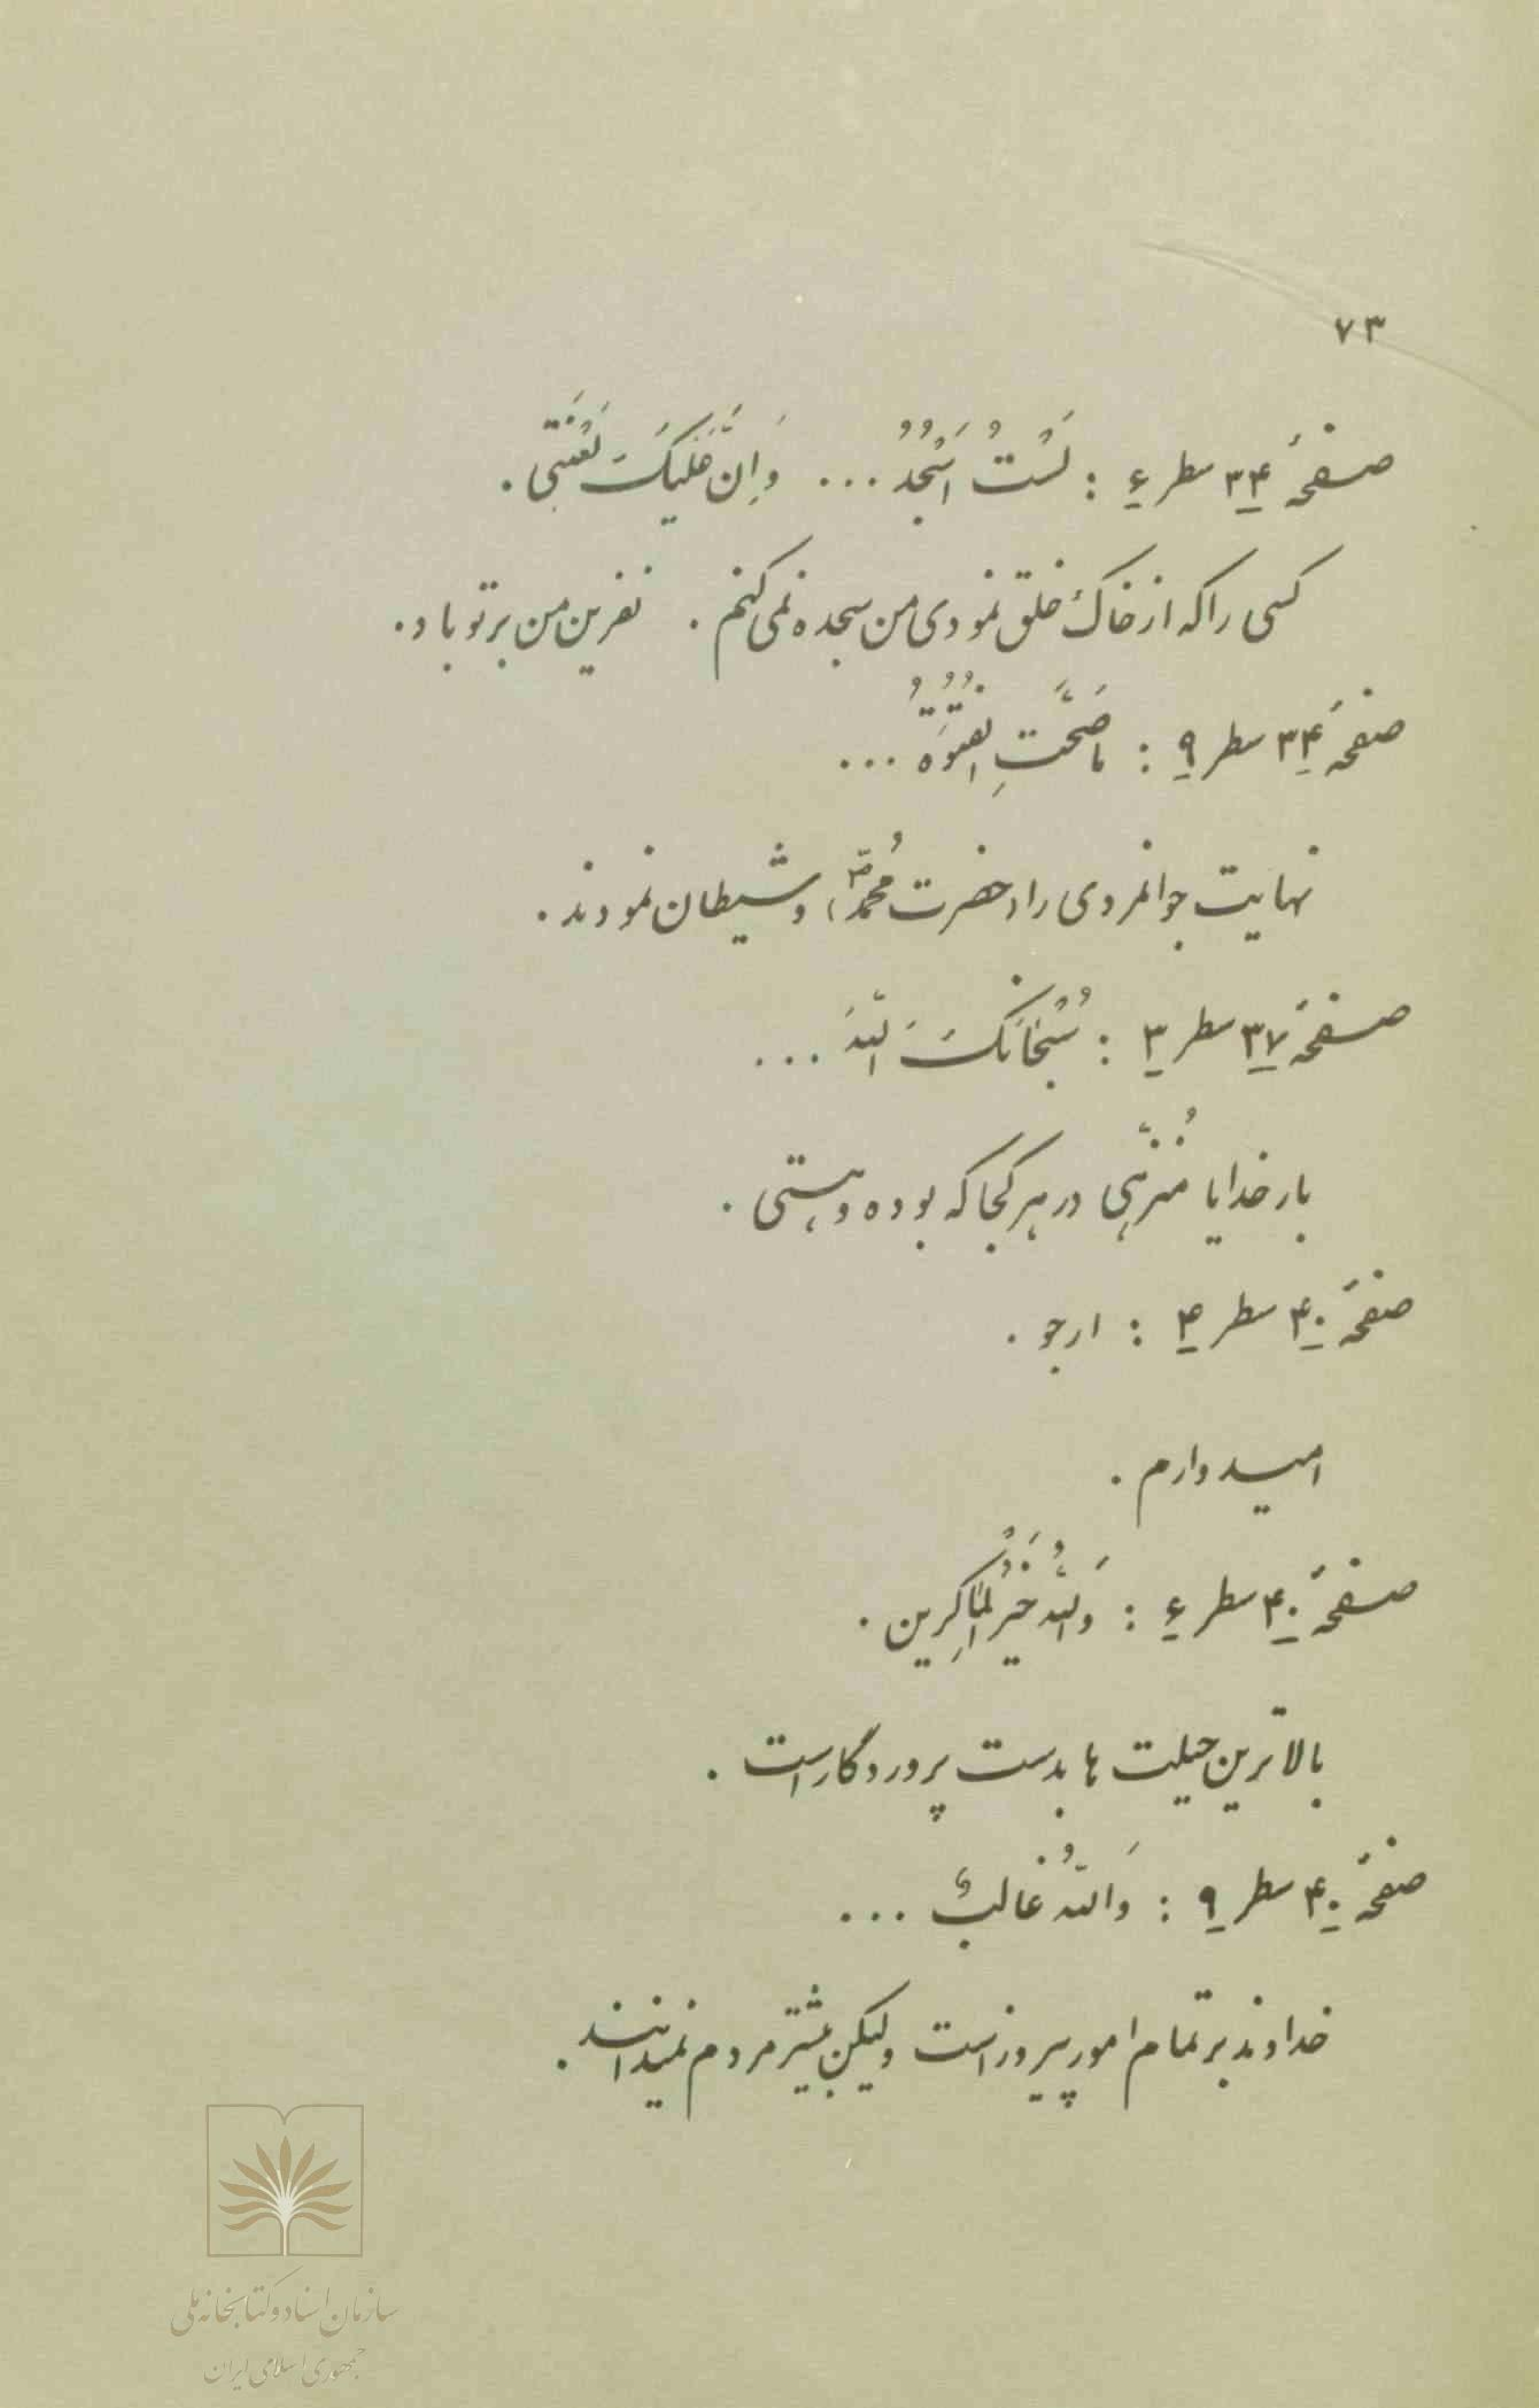 ۷۳
صفحهٔ ۳۴ سطر ۶ : لَسْتُ اَسْجُدُ ... وَاِنَّ عَلَیْکَ لَعْنَتی .
کسی را که از خاک خلق نمودی من سجده نمی کنم . نفرین من بر تو باد .
صفحهٔ ۳۴ سطر ۹ : ماصَحَّتِ الفُتُوَّةُ ...
نهایت جوانمردی را (حضرت مُحمّد ص) و شیطان نمودند .
صفحهٔ ۳۷ سطر ۳ : سُبْحانَکَ اللّهَ ...
بار خدایا مُنزّهی در هر کجا که بوده و هستی .
صفحهٔ ۴۰ سطر ۴ : ارجو .
امیدوارم .
صفحهٔ ۴۰ سطر ۶ : وَاللّهُ خَیْرُ الْماکِرین .
بالاترین حیلت ها بدست پروردگار است .
صفحهٔ ۴۰ سطر ۹ : وَاللّهُ غالبٌ ...
خداوند بر تمام امور پیروز است ولیکن بیشتر مردم نمیدانند .
سازمان اسناد و کتابخانه ملی
جمهوری اسلامی ایران